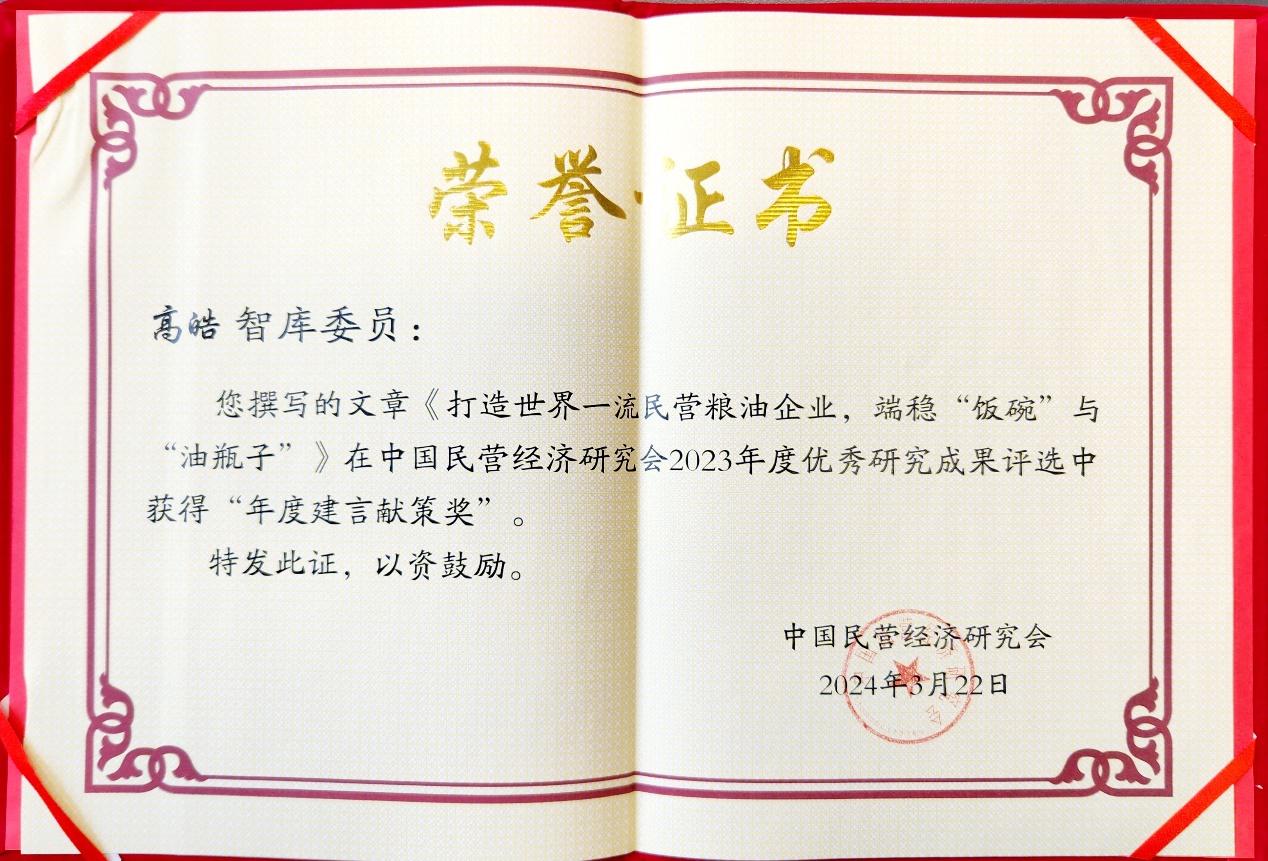 荣誉证书
高皓 智库委员：
您撰写的文章《打造世界一流民营粮油企业，端稳“饭碗”与
“油瓶子”》在中国民营经济研究会2023年度优秀研究成果评选中
获得“年度建言献策奖”。
特发此证，以资鼓励。
中国民营经济研究会
2024年3月22日